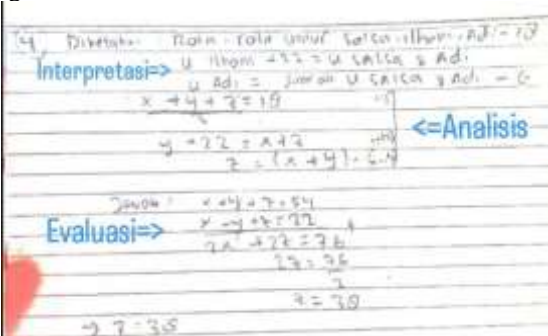 4. Diketahui: Rata-rata umur Salsa, Ilham, Adi = 18
Interpretasi=> u Ilham +22 = u Salsa & Adi
u Adi = jumlah u Salsa & Adi - 6
x + y + z = 18
y + 22 = x + z
<=Analisis
z = (x + y) - 6
Jawab: x + y + z = 54
x - y + z = 22
Evaluasi=>
2x + 2z = 76
2z = 76
2
z = 38
→ z = 38